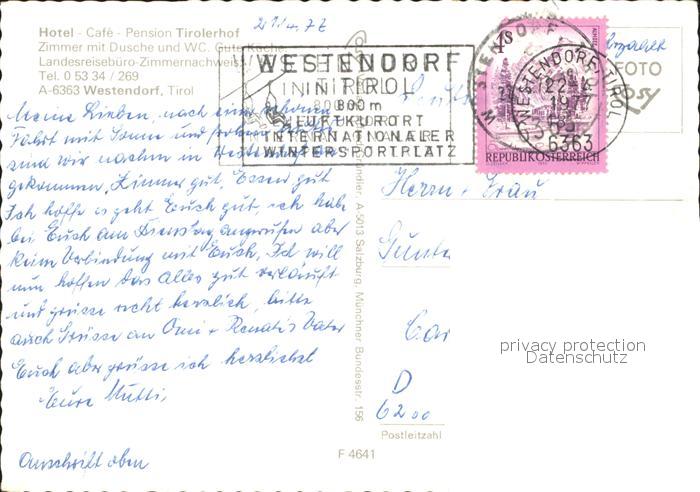 21/4.77
Hotel - Café - Pension Tirolerhof
Zimmer mit Dusche und WC. Gute Küche.
Landesreisebüro-Zimmernachweis
Tel. 0 53 34 / 269
A-6363 Westendorf, Tirol
WESTENDORF
IN TIROL
800 m
LUFTKURORT
INTERNATIONALER
WINTERSPORTPLATZ
WESTENDORF, TIROL
22.
6363
4S
REPUBLIK ÖSTERREICH
FOTO
Meine Lieben, nach einer schönen
Fahrt mit Sonne und
sind wir nachm in
gekommen, Zimmer gut, Essen gut
Ich hoffe es geht Euch gut, ich habe
bei Euch am Dienstag angerufen aber
keine Verbindung mit Euch, Ich will
nun hoffen das alles gut verläuft
und grüsse recht herzlich, bitte
auch Grüsse an Omi + Renatis Vater
Euch aber grüsse ich herzlichst
Eure Mutti,
Anschrift oben
Herrn + Frau
D
6200
Postleitzahl
A-5013 Salzburg, Münchner Bundesstr. 156
F 4641
privacy protection
Datenschutz